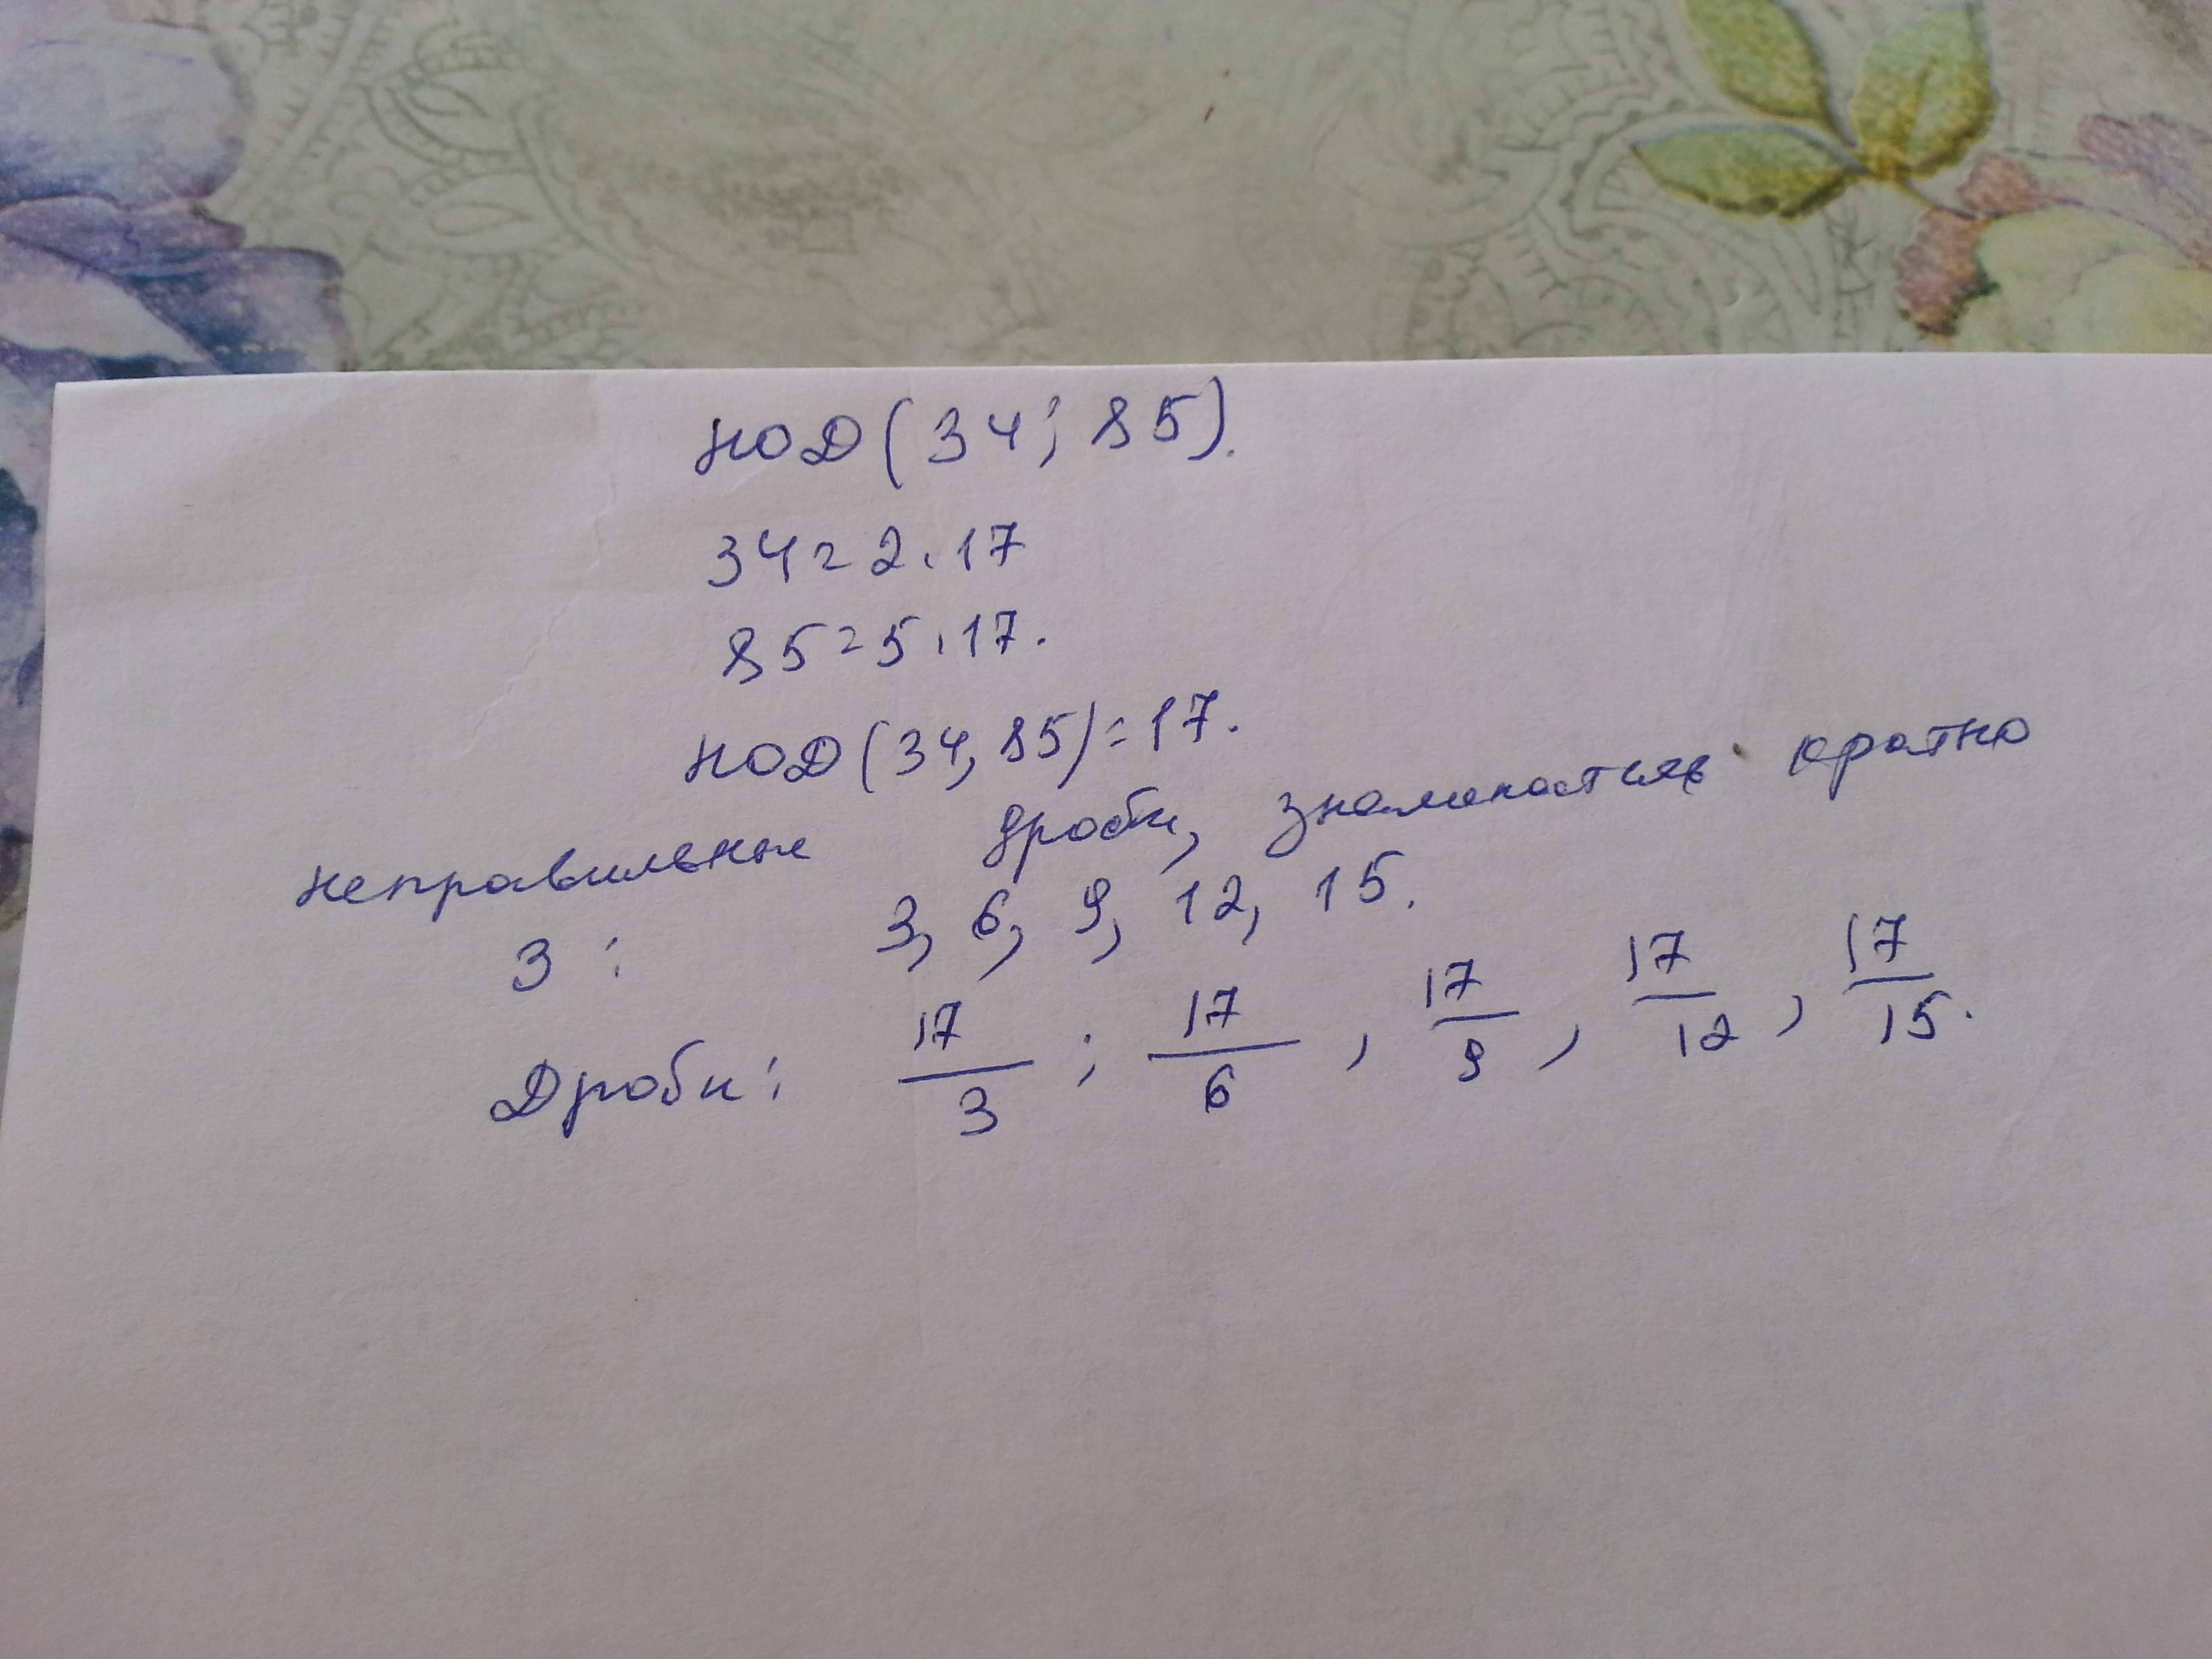 НОД(34; 85).
34=2·17
85=5·17.
НОД(34,85)=17.
неправильные дроби, знаменатель кратно
3: 3, 6, 9, 12, 15.
Дроби: 17/3; 17/6, 17/9, 17/12, 17/15.